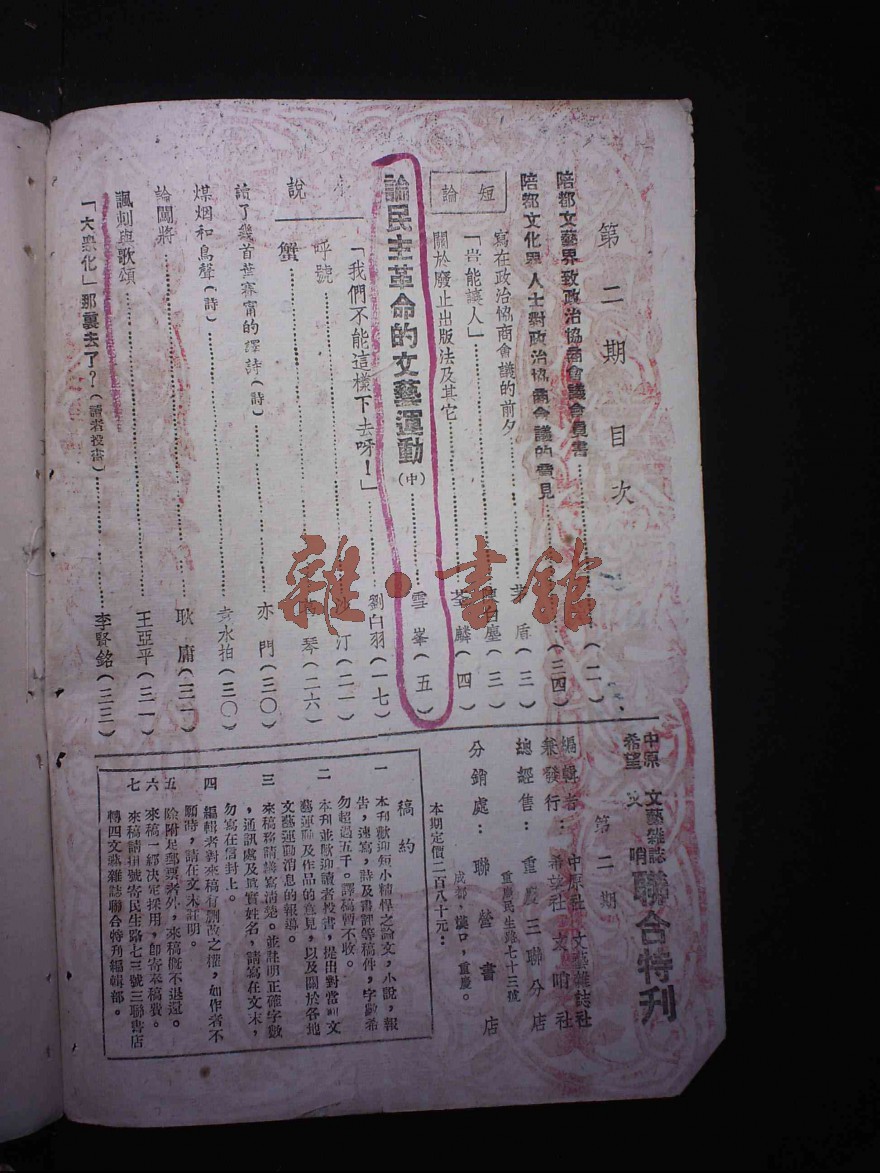 第二期目次
陪都文藝界致政治協商會議會員書……(二)
陪都文化界人士對政治協商會議的意見……(三四)
短論
寫在政治協商會議的前夕……茅盾(三)
「豈能讓人」……陳白塵(三)
關於廢止出版法及其它……荃麟(四)
論民主革命的文藝運動(中)……雪峯(五)
小說
「我們不能這樣下去呀!」……劉白羽(一七)
呼號……沙汀(二一)
蟹……琴(二六)
讀了幾首葉賽甯的譯詩(詩)……亦門(三〇)
煤烟和鳥聲(詩)……袁水拍(三〇)
論闖將……耿庸(三一)
諷刺與歌頌……王亞平(三一)
「大衆化」那裏去了?(讀者投書)……李賢銘(三三)
中原 文藝雜誌
希望 文哨
聯合特刊
第二期
編輯者兼發行:中原社 文藝雜誌社
希望社 文哨社
總經售:重慶三聯分店
重慶民生路七十三號
分銷處:聯營書店
成都,漢口,重慶。
本期定價二百八十元:
稿約
一 本刊歡迎短小精悍之論文,小說,報
告,速寫,詩及書評等稿件,字數希
勿超過五千。譯稿暫不收。
二 本刊並歡迎讀者投書,提出對當前文
藝運動及作品的意見,以及關於各地
文藝運動消息的報導。
三 來稿務請繕寫清楚。並註明正確字數
,通訊處及眞實姓名,請寫在文末,
勿寫在信封上。
四 編輯者對來稿有刪改之權,如作者不
願時,請在文末註明。
五 除附足郵票者外,來稿概不退還。
六 來稿一經决定採用,卽寄奉稿費。
七 來稿請掛號寄民生路七三號三聯書店
轉四文藝雜誌聯合特刊編輯部。
雜·書館